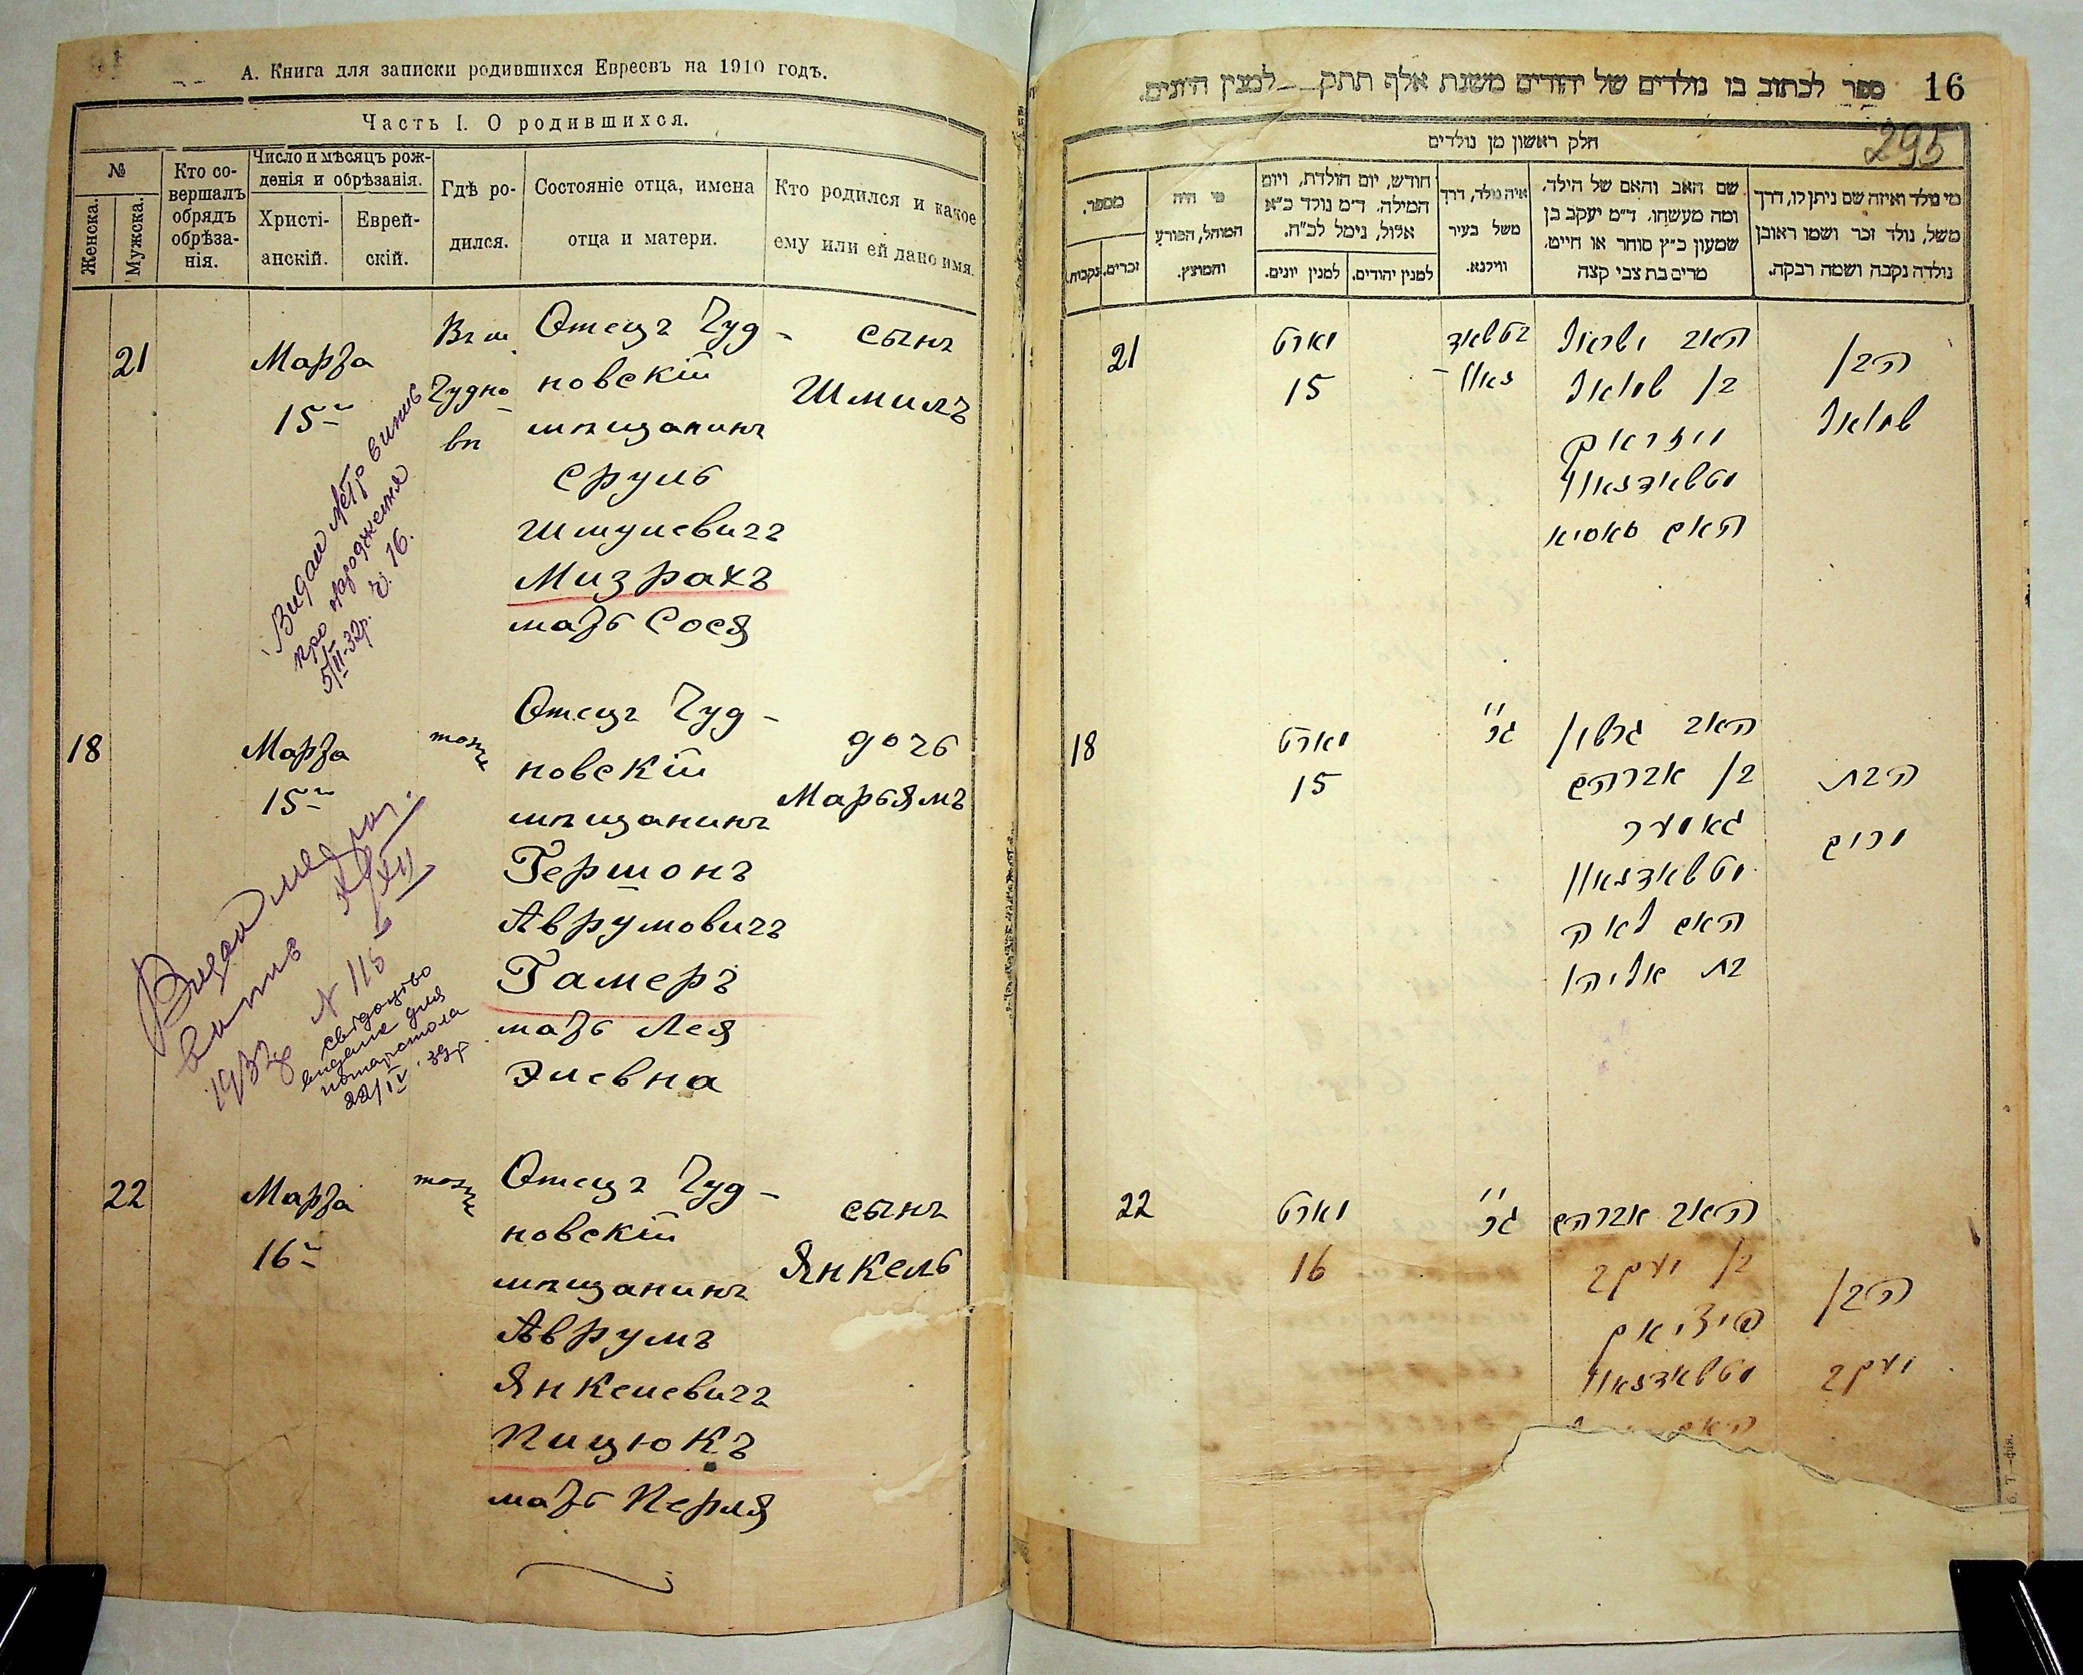 А. Книга для записки родившихся Евреевъ на 1910 годъ.
Часть I. О родившихся.
№
Женска.
Мужска.
Кто со-
вершалъ
обрядъ
обрѣза-
нія.
Число и мѣсяцъ рож-
денія и обрѣзанія.
Христі-
анскій.
Еврей-
скій.
Гдѣ ро-
дился.
Состояніе отца, имена
отца и матери.
Кто родился и какое
ему или ей дано имя.
21
Марта
15
Въ м.
Чудно
вѣ
Отецъ Чуд-
новскій
мѣщанинъ
Сруль
Шмулевичъ
Мизрахъ
мать Сося
сынъ
Шмиль
Видан метр витяг
про народження
5/II-32р. ч. 16.
18
Марта
15
тоже
Отецъ Чуд-
новскій
мѣщанинъ
Гершонъ
Аврумовичъ
Гамеръ
мать Лея
Элевна
дочь
Марьямъ
N 115
свідоцтво
видане для
22/IV 39р
22
Марта
16
тоже
Отецъ Чуд-
новскій
мѣщанинъ
Аврумъ
Янкелевичъ
Пицюкъ
мать Перля
сынъ
Янкель
ספר לכתוב בו נולדים של יהודים משנת אלף תתק למנין היונים.
16
295
חלק ראשון מן נולדים
מי נולד ואיזה שם ניתן לו, דרך
משל, נולד זכר ושמו ראובן
נולדה נקבה ושמה רבקה.
שם האב והאם של הילד,
ומה מעשהו. ד״מ יעקב בן
שמעון כ״ץ סוחר או חייט,
מרים בת צבי קצה
איה נולד, דרך
משל בעיר
ווילנא.
חודש, יום הולדת, ויום
המילה. ד״מ נולד כ״א
אלול, נימל לכ״ח.
למנין יהודים.
למנין יונים.
מי היה
המוהל, הפורע
והמוצץ.
מספר.
זכרים.
נקבות.
הבן
שמואל
האב ישראל
בן שמואל
מיזראם
מטשאדנאוו
האם סאסיא
מארט
15
21
הבת
מרים
האב גרשון
בן אברהם
גאמער
מטשאדנאוו
האם לאה
בת אליהו
גם
מארט
15
18
הבן
יעקב
האב אברהם
בן יעקב
מטשאדנאוו
האם
גם
מארט
16
22